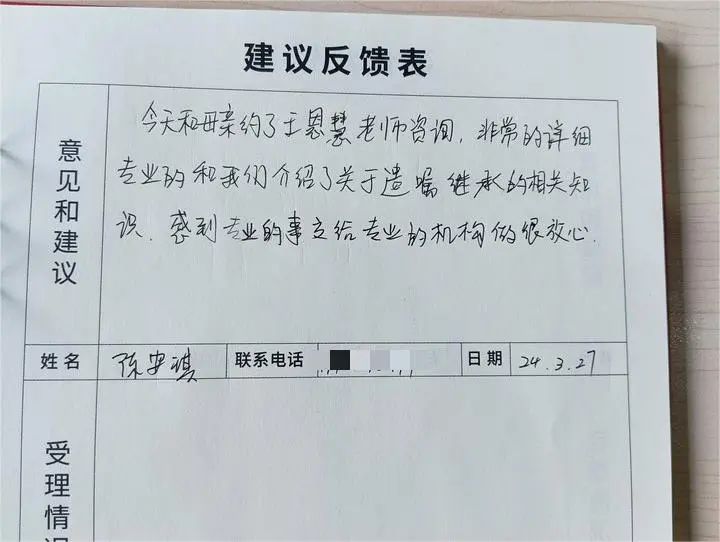 建议反馈表
意见和建议
今天和母亲约了王恩慧老师咨询，非常的详细
专业的和我们介绍了关于遗嘱继承的相关知
识，感到专业的事交给专业的机构做很放心.
姓名 陈安琪 联系电话 日期 24.3.27
受理情况